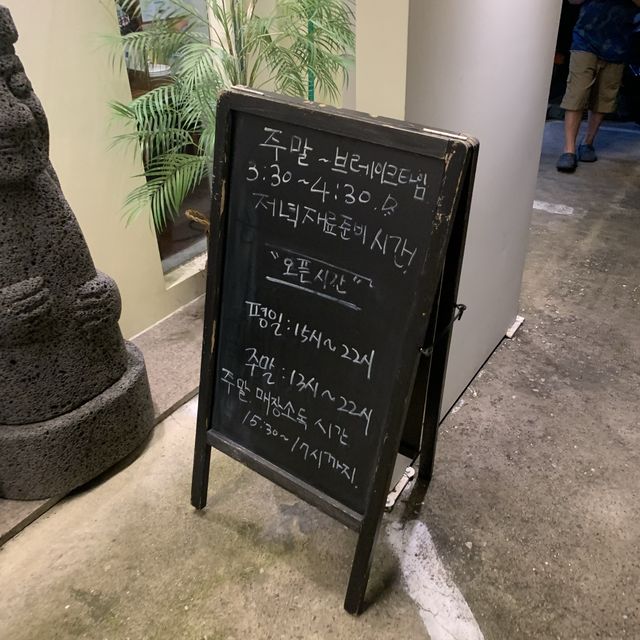 주말 ~ 브레이크타임
3:30 ~ 4:30
저녁재료준비 시간!
"오픈시간"
평일 : 15시 ~ 22시
주말 : 13시 ~ 22시
주말 매장소독 시간
15:30 ~ 17시까지.